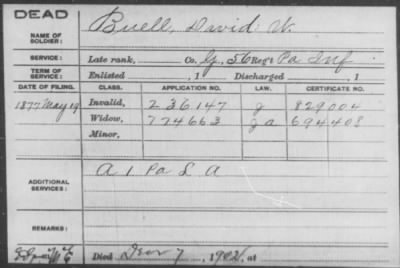 DEAD
NAME OF SOLDIER: Buell, David W.
SERVICE: Late rank, Co. G, 56 Reg't Pa Inf
TERM OF SERVICE: Enlisted , 1 Discharged , 1
DATE OF FILING. CLASS. APPLICATION NO. LAW. CERTIFICATE NO.
1877 May 19 Invalid, 236147 829004
Widow, 774663 694408
Minor,
ADDITIONAL SERVICES: A 1 Pa L A
REMARKS:
Died 7, 1902, at